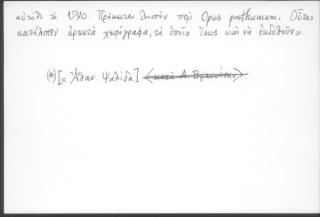 αὐτόθι τὸ 1790. Πρόκειται λοιπὸν περὶ Opus posthumum. Οὗτος
κατέλιπεν ἀρκετὰ χειρόγραφα, τὰ ὁποῖα ἴσως καὶ νὰ ἐκδοθοῦν».
(*) [= Ἀθαν. Ψαλίδα] <κατὰ Λ. Βρανούσην>